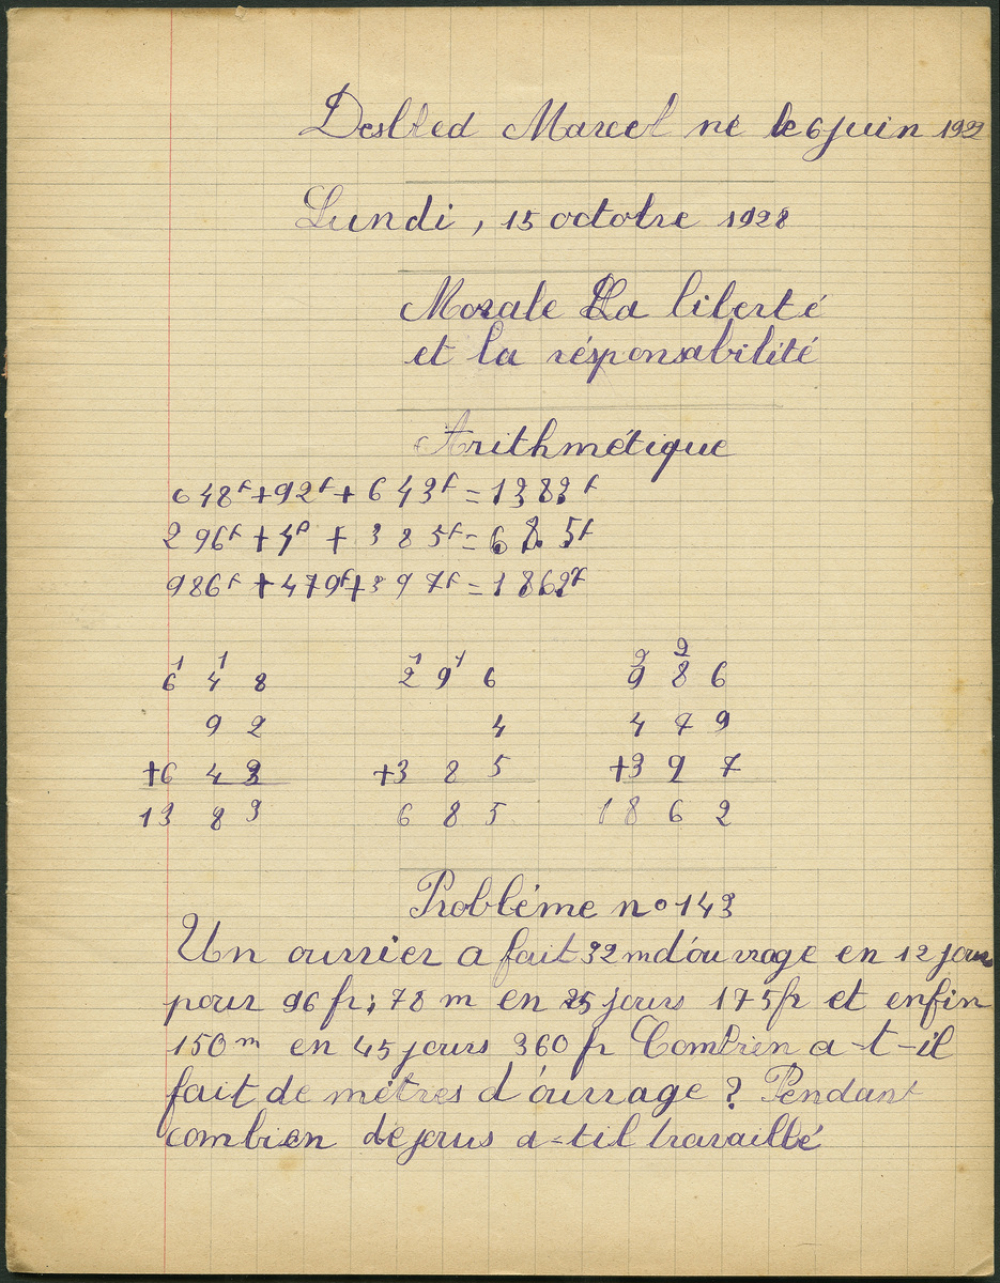 Marcel né le 6 juin 192
Lundi, 15 octobre 1928
Morale La liberté
et la résponsabilité
Arithmétique
648f + 92f + 643f = 1383f
296f + 4f + 385f = 685f
986f + 479f + 397f = 1862f
1 1 1 1 2 2
6 4 8 2 9 6 9 8 6
9 2 4 4 7 9
+6 4 3 +3 8 5 +3 9 7
13 8 3 6 8 5 18 6 2
Probléme no 143
Un ouvrier a fait 32 m d'ouvrage en 12 jours
pour 96 fr; 78 m en 25 jours 175 fr et enfin
150 m en 45 jours 360 fr Combien a-t-il
fait de mètres d'ouvrage ? Pendant
combien de jorus a-til travaillé